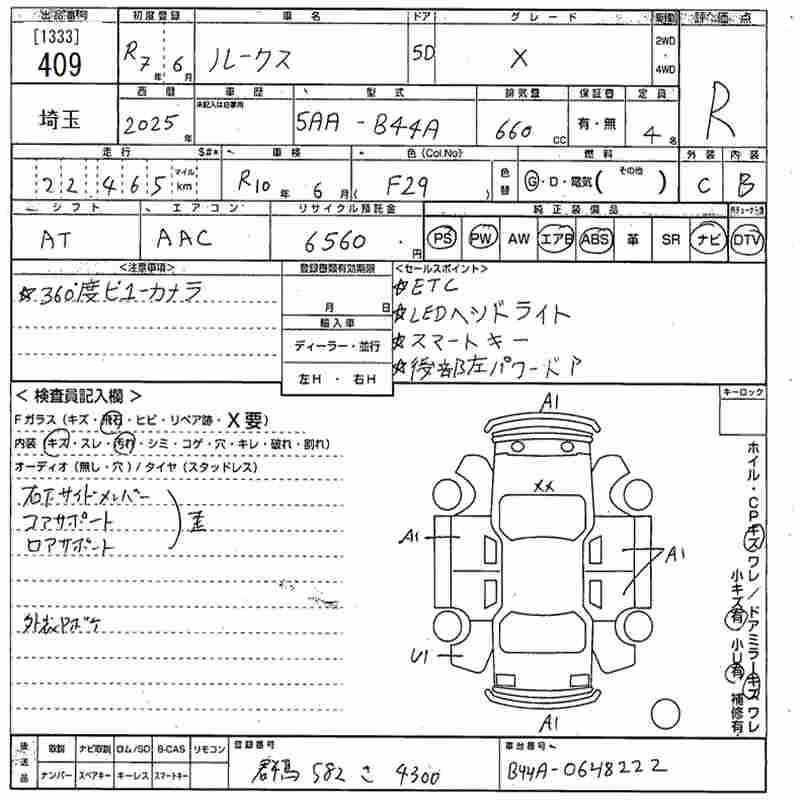 出品番号 初度登録 車名 ドア グレード 駆動 評価点
[1333] 409 R7年6月 ルークス 5D X 2WD・4WD R
埼玉 西暦 車歴 型式 排気量 保証書 定員
2025年 未記入は自家用 5AA-B44A 660cc 有・無 4名
走行 S#* 車検 色(Col.No) 色替 燃料 外装 内装
22,465 マイル km R10年6月 ( F29 ) G・D・電気( その他 ) C B
シフト エアコン リサイクル預託金 純正装備品
AT AAC 6560円 PS PW AW エアB ABS 革 SR ナビ DTV
<注意事項> 登録書類有効期限 <セールスポイント>
☆360°度ビューカメラ 月 日 ☆ETC
輸入車 ☆LEDヘッドライト
ディーラー・並行 ☆スマートキー
左H・右H ☆後部左パワードア
<検査員記入欄> キーロック
Fガラス(キズ・飛石・ヒビ・リペア跡・X要)
内装(キズ・スレ・汚れ・シミ・コゲ・穴・キレ・破れ・割れ)
オーディオ(無し・穴)/タイヤ(スタッドレス)
右下サイドメンバー
コアサポート 歪
ロアサポート
A1
XX
A1 A1
U1
A1
ホイル・CPキズワレ/ドアミラーキズワレ
小キズ有 小U有 補修有
後送品 取説 ナビ取説 ロム/SD B-CAS リモコン 登録番号 車台番号
ナンバー スペアキー キーレス スマートキー 群馬 582 さ 4300 B44A-0648222